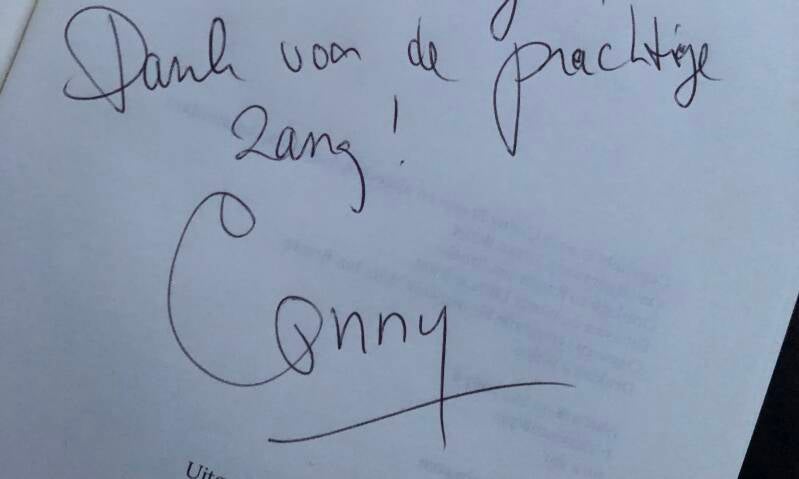 Dank voor de prachtige
zang!
Conny
Uitg